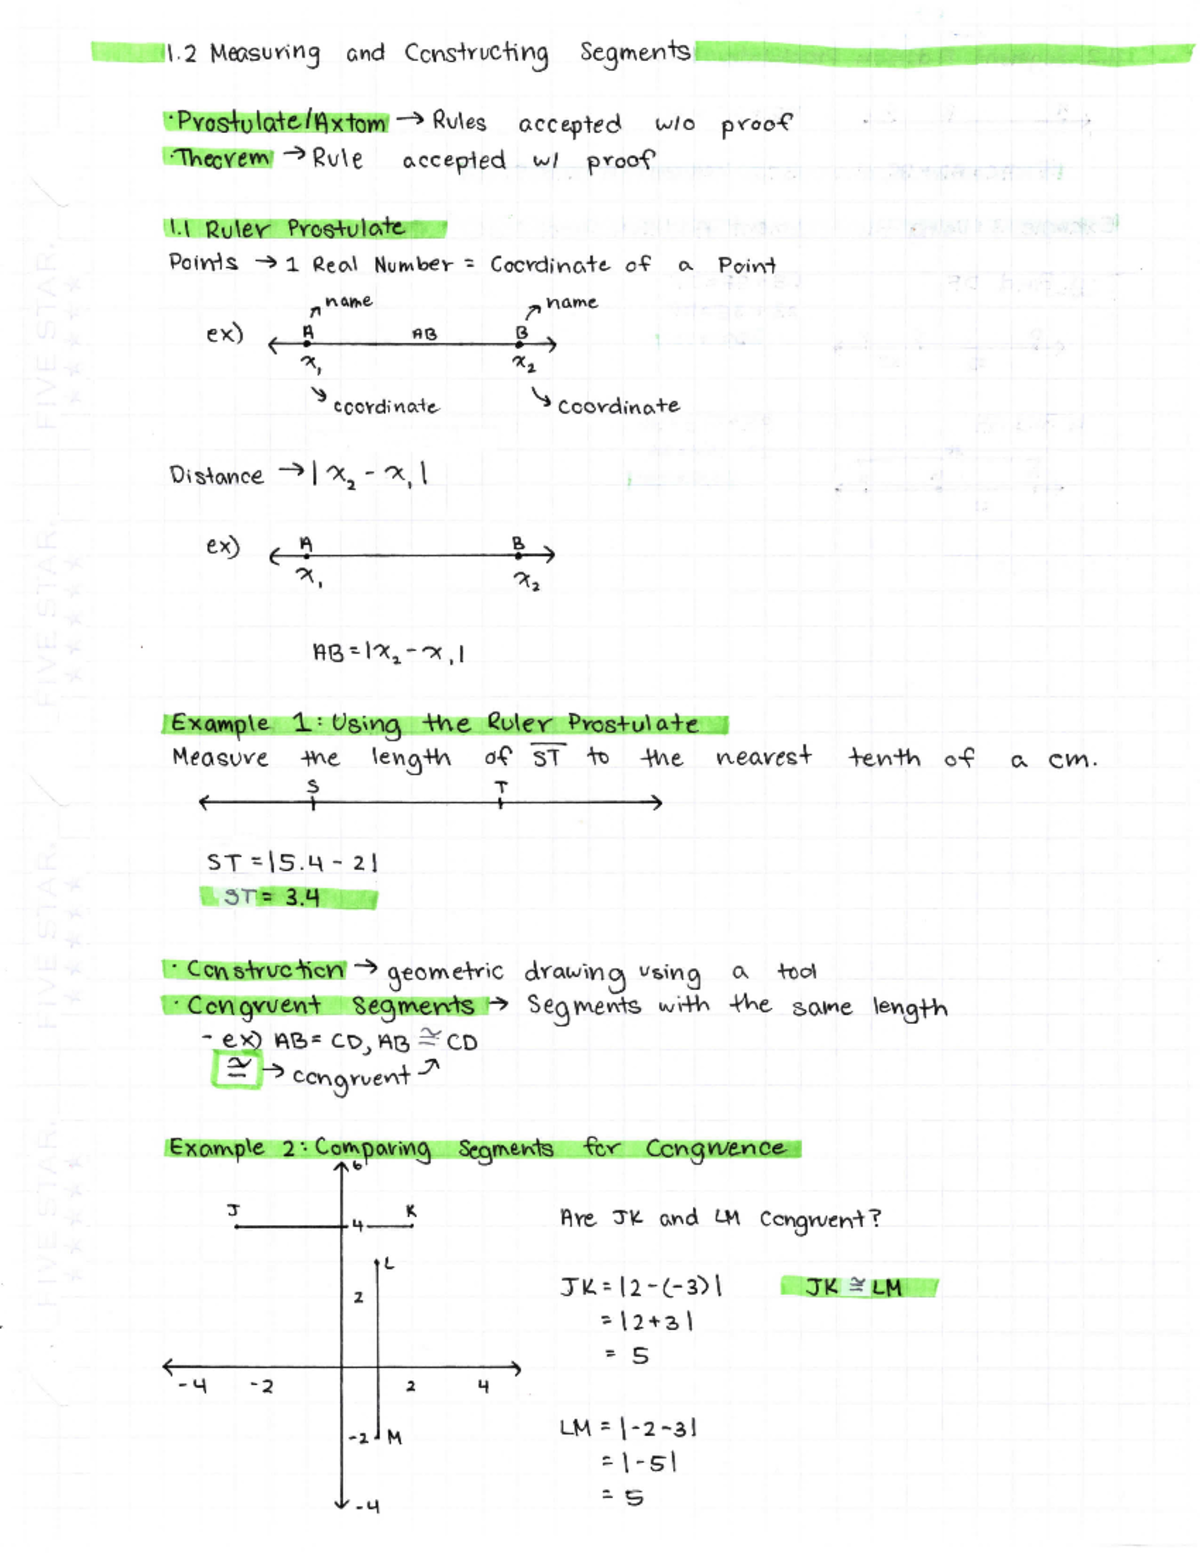 1.2 Measuring and Constructing Segments
·Prostulate/Axtom → Rules accepted w/o proof
·Theorem → Rule accepted w/ proof
1.1 Ruler Prostulate
Points → 1 Real Number = Coordinate of a Point
name name
ex) A AB B
x₁ x₂
coordinate coordinate
Distance → |x₂ - x₁|
ex) A B
x₁ x₂
AB = |x₂ - x₁|
Example 1: Using the Ruler Prostulate
Measure the length of S̅T̅ to the nearest tenth of a cm.
S T
ST = |5.4 - 2|
ST = 3.4
· Construction → geometric drawing using a tool
· Congruent Segments → Segments with the same length
- ex) AB = CD, AB ≅ CD
≅ → congruent ↗
Example 2: Comparing Segments for Congruence
6
J 4 K
Are JK and LM Congruent?
L
2
JK = |2-(-3)| JK ≅ LM
= |2+3|
= 5
-4 -2 2 4
-2 M
LM = |-2-3|
= |-5|
= 5
-4
FIVE STAR.
FIVE STAR.
FIVE STAR.
FIVE STAR.